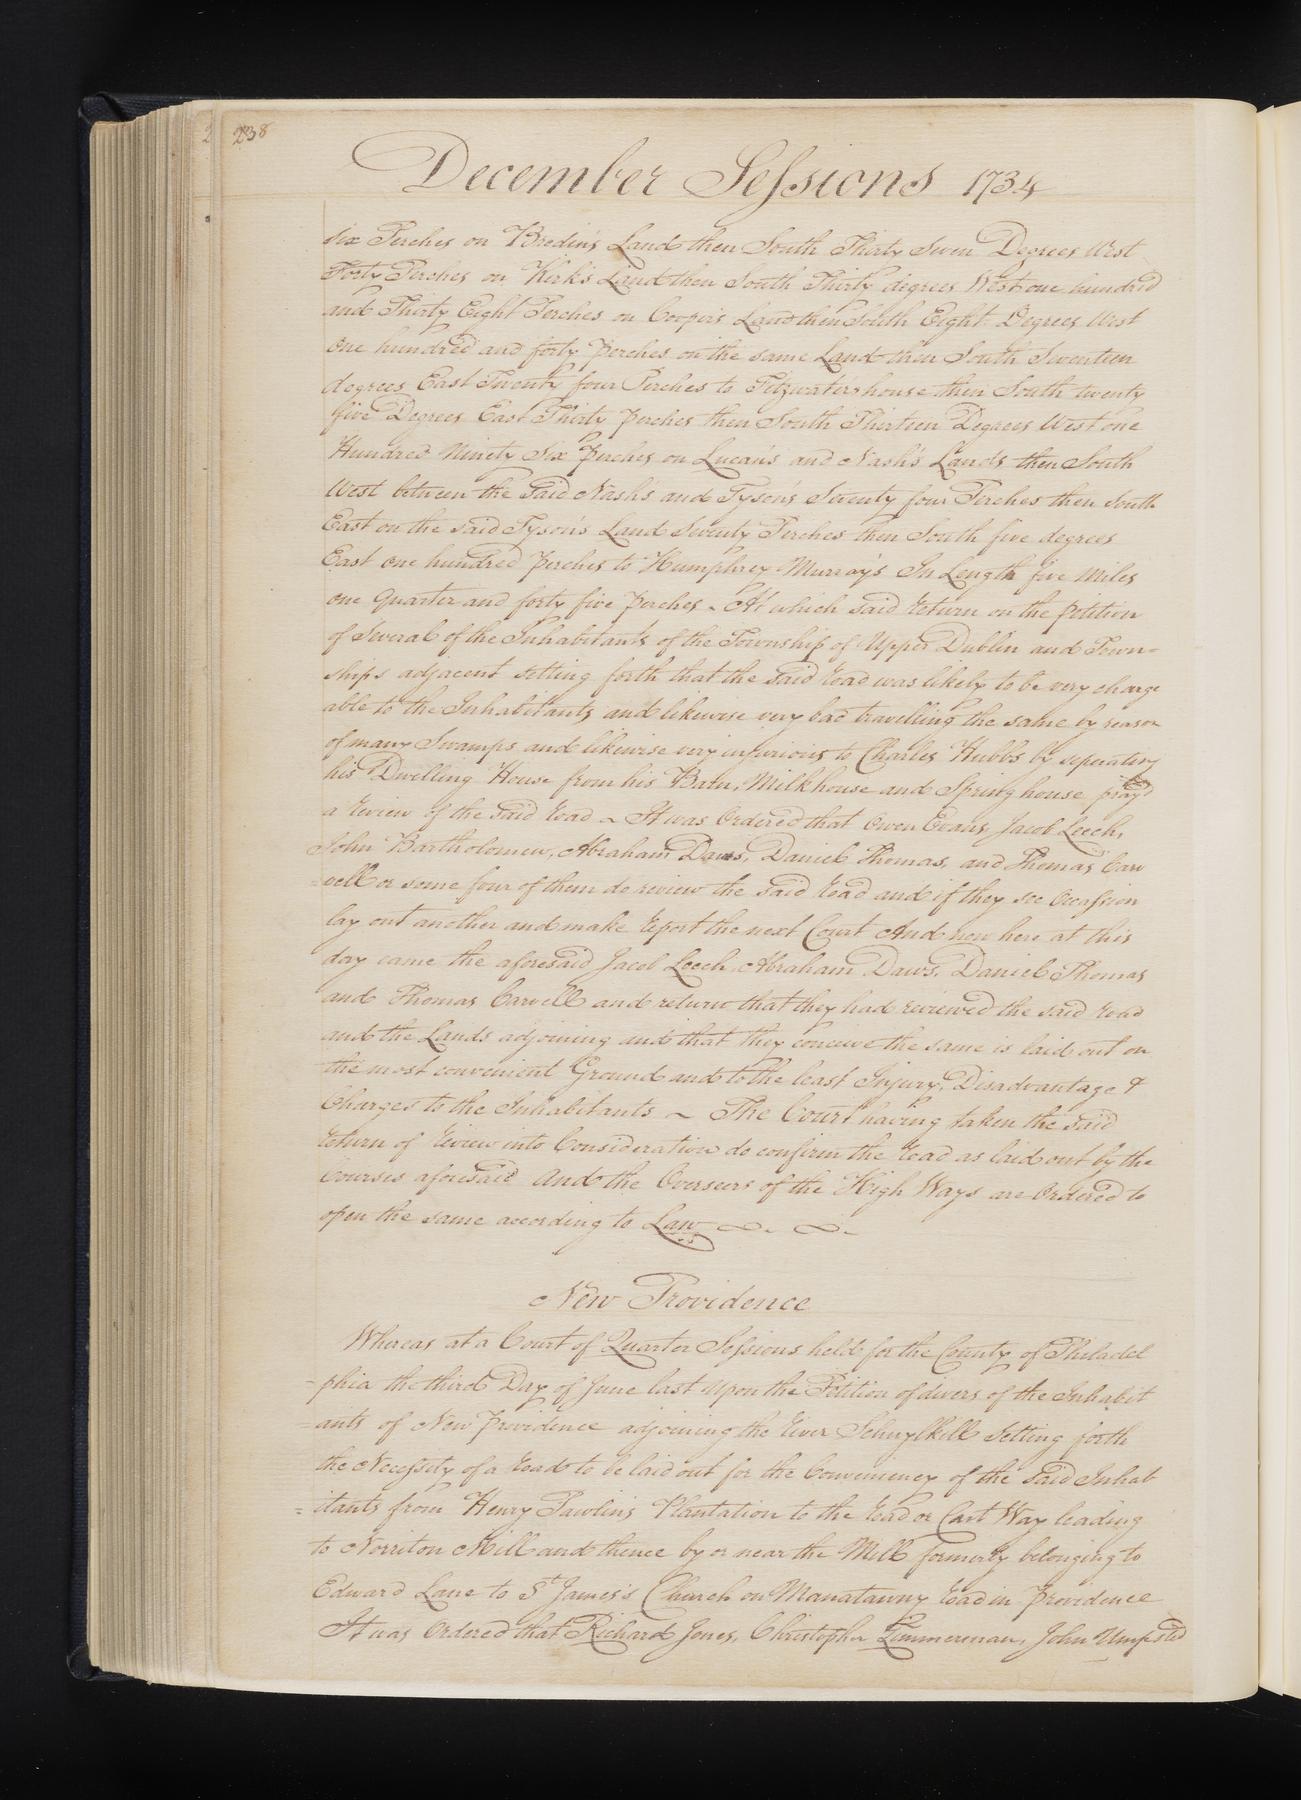 238
December Sessions 1734
six Perches on Bredin's Land then South Thirty Seven Degrees West
Forty Perches on Kirk's Land then South Thirty degrees West one hundred
and Thirty Eight Perches on Cooper's Land then South Eight Degrees West
one hundred and forty perches on the same Land then South Seventeen
degrees East Twenty four Perches to Fitzwater's house then South twenty
five Degrees East Thirty perches then South Thirteen Degrees West one
Hundred Ninety Six perches on Lucan's and Nash's Lands then South
West between the said Nash's and Tyson's Seventy four Perches then South
East on the said Tyson's Land Twenty Perches then South five degrees
East one hundred perches to Humphrey Murray's In Length five Miles
one quarter and forty five perches ~ At which said return on the petition
of Several of the Inhabitants of the Township of Upper Dublin and Town=
ships adjacent setting forth that the said Road was likely to be very charge
able to the Inhabitants and likewise very bad travelling the same by reason
of many Swamps and likewise very injurious to Charles Hubbs by seperating
his Dwelling House from his Barn, Milkhouse and Spring house pray'd
a review of the said road ~ It was Ordered that Owen Evans, Jacob Leech,
John Bartholomew, Abraham Daws, Daniel Thomas, and Thomas Car
=vell or some four of them do review the said road and if they see Occassion
lay out another and make report the next Court And now here at this
day came the aforesaid Jacob Leech, Abraham Daws, Daniel Thomas
and Thomas Carvell and return that they had reviewed the said road
and the Lands adjoining and that they conceive the same is laid out on
the most convenient Ground and to the least Injury, Disadvantage &
Charges to the Inhabitants ~ The Court having taken the said
return of review into Consideration do confirm the road as laid out by the
Courses aforesaid And the Overseers of the High Ways are Ordered to
open the same according to Law
New Providence
Whereas at a Court of Quarter Sessions held for the County of Philadel
=phia the third Day of June last upon the Petition of divers of the Inhabit
=ants of New providence adjoining the river Schuylkill Setting forth
the Necessity of a road to be laid out for the Conveniency of the said Inhab
=itants from Henry Pawlin's Plantation to the road or Cart Way leading
to Norriton Mill and thence by or near the Mill formerly belonging to
Edward Lane to St James's Church on Manatawny road in providence
It was Ordered that Richard Jones, Christopher Zimmerman, John Umpsted